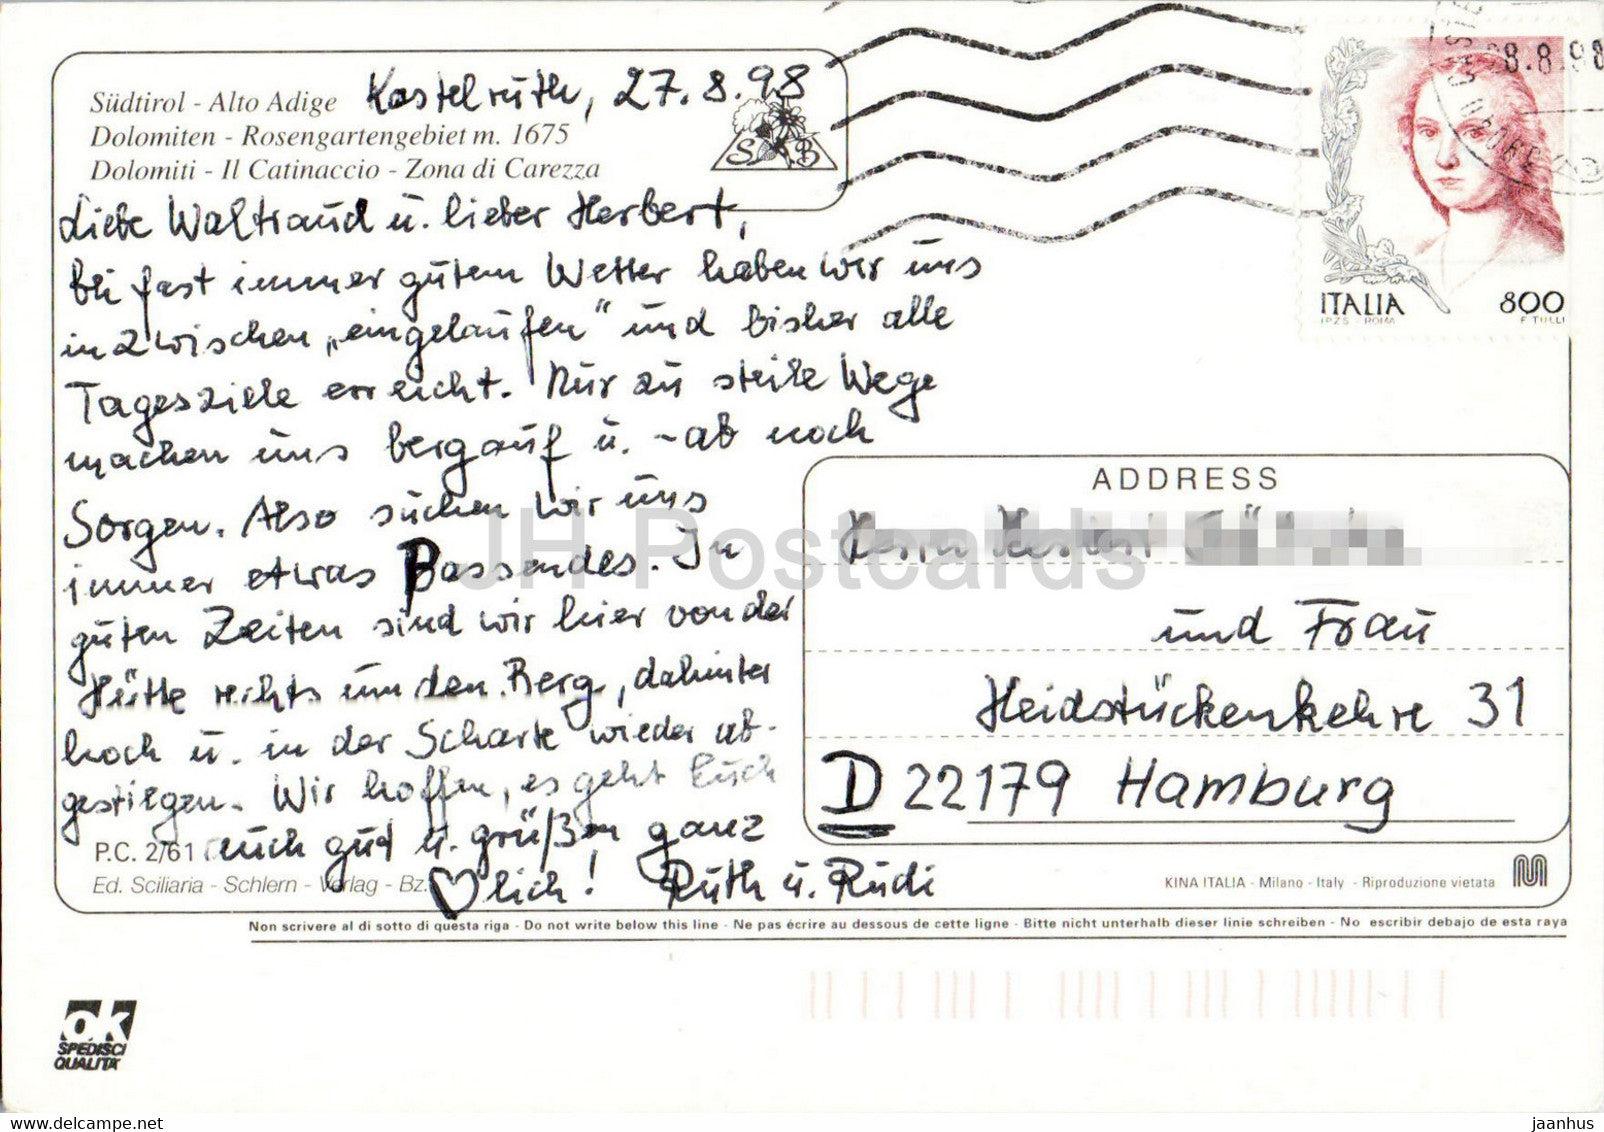 Südtirol - Alto Adige
Kastelruth, 27.8.98
Dolomiten - Rosengartengebiet m. 1675
Dolomiti - Il Catinaccio - Zona di Carezza
S B
Liebe Waltraud u. lieber Herbert,
bei fast immer gutem Wetter haben wir uns
inzwischen „eingelaufen" und bisher alle
Tagesziele erreicht. Nur zu steile Wege
machen uns bergauf u. -ab noch
Sorgen. Also suchen wir uns
immer etwas Passendes. In
guten Zeiten sind wir hier von der
Hütte rechts um den Berg, dahinter
hoch u. in der Scharte wieder ab-
gestiegen. Wir hoffen, es geht Euch
auch gut u. grüßen ganz
♡lich! Ruth u. Rudi
P.C. 2/61
Ed. Sciliaria - Schlern - Verlag - Bz.
8.8.98
ITALIA 800
I.P.Z.S. - ROMA F. TULLI
ADDRESS
Herrn Herbert
und Frau
Heidstückenkehre 31
D 22179 Hamburg
KINA ITALIA - Milano - Italy - Riproduzione vietata
Non scrivere al di sotto di questa riga - Do not write below this line - Ne pas écrire au dessous de cette ligne - Bitte nicht unterhalb dieser linie schreiben - No escribir debajo de esta raya
ok
SPEDISCI
QUALITA'
JH Postcards
www.delcampe.net
jaanhus